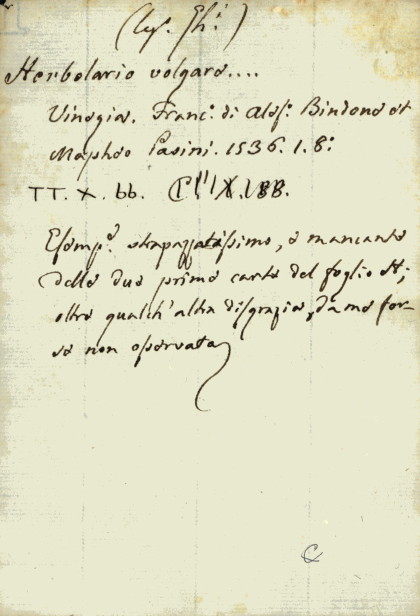 Herbolario volgare....
Vinegia. Franc.º di Aless.º Bindone et
Mapheo Pasini. 1536. 1. 8.º
TT. X. bb.
Esemp.º strapazzatissimo, e mancante
delle due prime carte del foglio A;
oltre qualch'altra disgrazia, da me for-
se non osservata
C